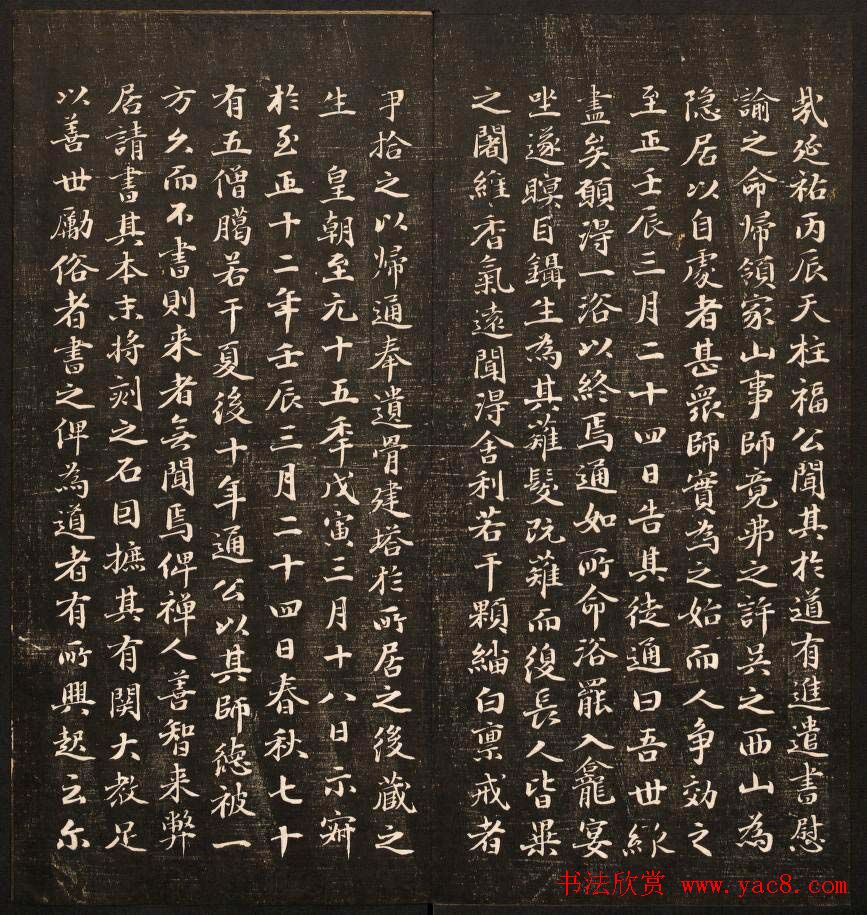 哉延祐丙辰天柱福公聞其於道有進遣書慰
諭之命歸領家山事師竟弗之許吳之西山為
隐居以自處者甚眾師實為之始而人争効之
至正壬辰三月二十四日告其徒通曰吾世緣
盡矣願得一浴以終焉通如所命浴罷入龕宴
坐遂瞑目鑷生為其薙髮既薙而復長人皆異
之闍維香氣遠聞得舍利若干顆緇白禀戒者
爭拾之以歸通奉遺骨建塔於所居之後藏之
生 皇朝至元十五季戊寅三月十八日示寂
於至正十二年壬辰三月二十四日春秋七十
有五僧臈若干夏後十年通公以其師德被一
方久而不書則来者無聞焉俾禅人善智来弊
居請書其本末将刻之石因摭其有関大教足
以善世勵俗者書之俾為道者有所興起云尔
书法欣赏 www.yac8.com